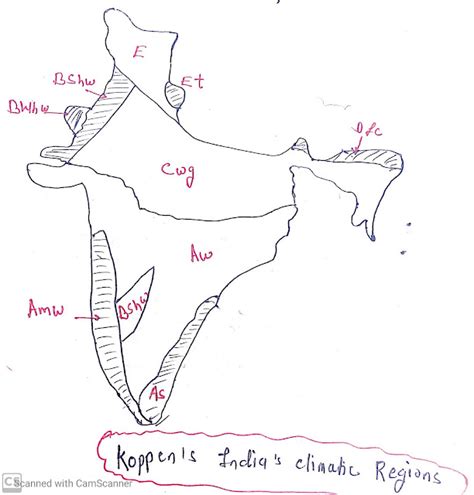 E
BShw
Et
BWhw
Dfc
Cwg
Aw
Amw
BShw
As
Koppen's India's climatic Regions
CS Scanned with CamScanner